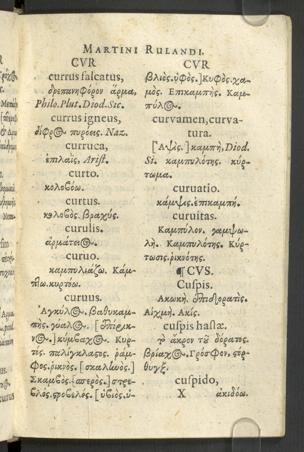 MARTINI RULANDI.
CVR
currus falcatus,
δρεπανηφόρον ἅρμα,
Philo. Plut. Diod. Sic.
currus igneus,
δίφρος πυρόεις. Naz.
curruca,
ἐπιλαῒς, Arist.
curto.
κολοβόω.
curtus.
κολοβὸς. βραχύς.
curulis.
ἁρμάτειος.
curuo.
καμπυλιάζω. Κάμ-
πτω. κυρτόω.
curuus.
Ἀγκύλος. βαθυκαμ-
πὴς. γυαλὸς.
κύμβαχος. Κυρ-
τὸς. παλίγκλαςος. ῥάμ-
φος. ῥικνὸς. [σκαλίωὸς.]
Σκαμβὸς. στρε-
βλὸς. στροβελὸς. [ὑβιὸς. ὑ-
CVR
βλιὸς. ὑφὸς.] Κυφὸς. χα-
μὸς. Επικαμπὴς. Καμ-
πύλος.
curvamen, curva-
tura.
[Ἁψὶς.] καμπὴ, Diod.
Si. καμπυλότης. κύρ-
τωμα.
curuatio.
κάμψις. ἐπικαμπή.
curuitas.
Καμπύλον. γαμψω-
λὴ. Καμπυλότης. Κύρ-
τωσις. ῥικνότης.
¶ CVS.
Cuspis.
Ακωκὴ. ἐπιδορατὶς.
Αἰχμὴ. Ακίς.
cuspis hastæ.
τὸ ἄκρον τοῦ δόρατος.
βρίαχος. Γρόσφον. στόρ-
θυγξ.
cuspido,
X ἀκιδόω.